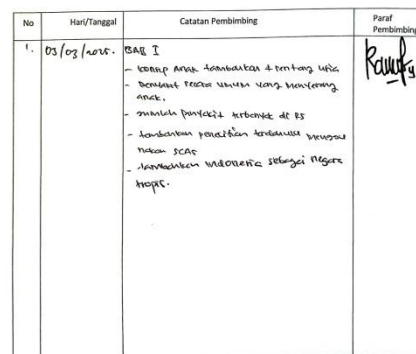 No Hari/Tanggal Catatan Pembimbing Paraf Pembimbing
1. 03/03/2025. BAB I
- konsep Anak tambahkan + rentang usia
- Penyakit secara umum yang menyerang
anak.
- jumlah penyakit terbanyak di RS
- tambahkan penelitian terdahulu menggu
nakan SCAS
- tambahkan Indonesia sebagai Negara
tropis.